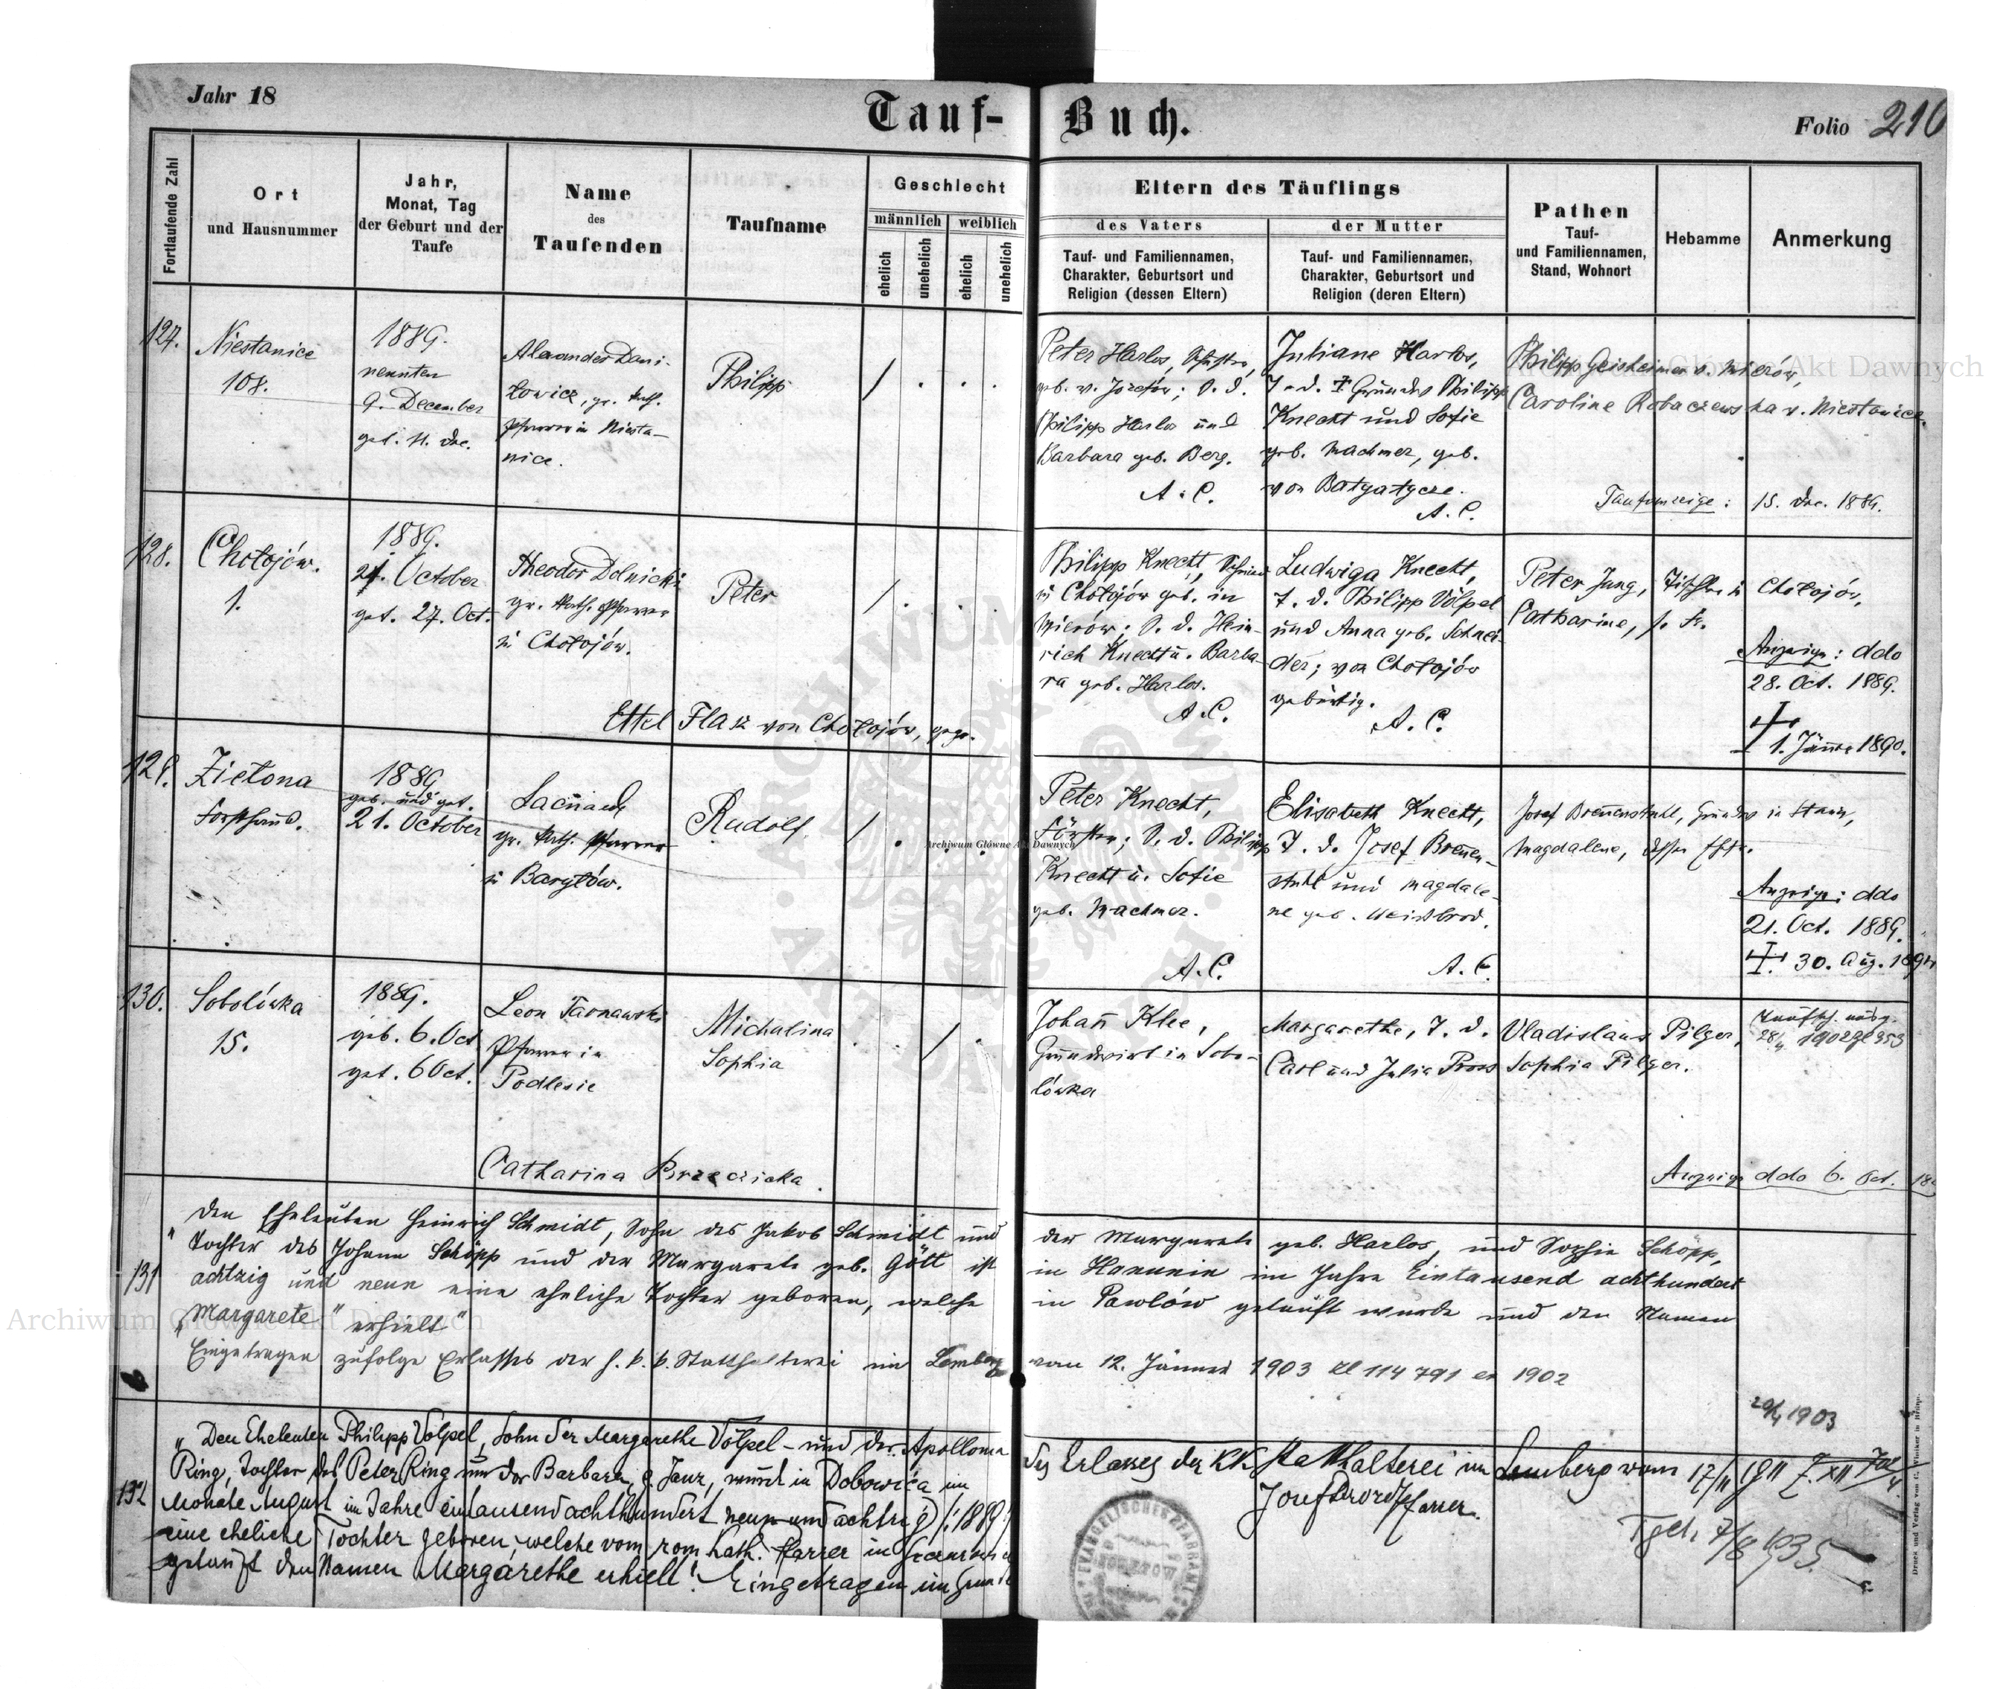 Jahr 18
Tauf-Buch.
Folio 210
Fortlaufende Zahl
Ort
und Hausnummer
Jahr,
Monat, Tag
der Geburt und der
Taufe
Name
des
Taufenden
Taufname
Geschlecht
männlich
weiblich
ehelich
unehelich
ehelich
unehelich
Eltern des Täuflings
des Vaters
der Mutter
Tauf- und Familiennamen,
Charakter, Geburtsort und
Religion (dessen Eltern)
Tauf- und Familiennamen,
Charakter, Geburtsort und
Religion (deren Eltern)
Pathen
Tauf-
und Familiennamen,
Stand, Wohnort
Hebamme
Anmerkung
127.
Niestanice
108.
1889.
neunten
9. December
get. 11. Dec.
Alexander Dani-
łowicz, gr. kath.
Pfarrer in Niesta-
nice.
Philipp
Peter Harlos,
geb. v. Józefów; S. d.
Philipp Harlos und
Barbara geb. Berg.
A. C.
Juliane Harlos,
T. d. Philipp
Knecht und Sofie
geb. Wachmer, geb.
von Batyatycze.
A. C.
Philipp Geisheimer v. Mierów,
Caroline Robaczewska v. Niestanice.
Taufanzeige: 15. Dec. 1889.
128.
Chołojów.
1.
1889.
21. October
get. 27. Oct.
Theodor Dolnicki
gr. kath. Pfarrer
in Chołojów.
Peter
Philipp Knecht,
in Chołojów geb. in
Mierów; S. d. Hein-
rich Knecht u. Barba-
ra geb. Harlos.
A. C.
Ludwiga Knecht,
T. d. Philipp Völpel
und Anna geb. Schnei-
der; von Chołojów
gebürtig.
A. C.
Peter Jung, Tischler in Chołojów,
Catharine, s. Fr.
Anzeige: ddo
28. Oct. 1889.
1. Jänner 1890.
Ettel Flasz von Chołojów,
129.
Zielona
Forsthaus.
1889
geb. und get.
21. October
gr. kath. Pfarrer
in Baryłów.
Rudolf
Peter Knecht,
Förster; S. d. Philipp
Knecht u. Sofie
geb. Wachmer.
A. C.
Elisabeth Knecht,
T. d. Josef Brenen-
stuhl und Magdale-
ne geb. Weissbrod.
A. C.
Josef Brennenstuhl, in Stanin,
Magdalene, dessen Ehefr.
Anzeige: ddo
21. Oct. 1889.
30. Aug.
130.
Sobolówka
15.
1889.
geb. 6. Oct
get. 6 Oct.
Leon Tarnawski
Pfarrer in
Podlesie
Michalina
Sophia
Johann Klee,
Grundwirt in Sobo-
lówka
Margarethe, T. d.
Carl und Julia Pross
Vladislaus Pilger,
Sophia Pilger.
28/4 1902 Zl 353
Catharina Brzezicka.
Anzeige ddo 6. Oct.
131
"Den Eheleuten Heinrich Schmidt, Sohn des Jakob Schmidt und der Margarete geb. Harlos, und Sophie Schöpp,
Tochter des Johann Schöpp und der Margarete geb. Gött ist in Hanunin im Jahre Eintausend achthundert
achtzig und neun eine eheliche Tochter geboren, welche in Pawlów getauft wurde und den Namen
"Margarete" erhielt"
Eingetragen zufolge Erlasses der h. k. k. Statthalterei in Lemberg vom 12. Jänner 1903 Zl 114791 ex 1902
1903
132
"Den Eheleuten Philipp Völpel, Sohn der Margarethe Völpel - und der Apollonia
Ring, Tochter des Peter Ring und der Barbara g. Janz, wurde in Dobowica im
Monate August im Jahre eintausendachthundert neun und achtzig /:1889:/
eine eheliche Tochter geboren, welche vom rom kath. Pfarrer in
getauft den Namen Margarethe erhielt! Eingetragen im Grunde
des Erlasses der KK Statthalterei in Lemberg vom 17/11 1911 Z. XII
Pfarrer.
7/8 1935
EVANGELISCHES PFARRAMT
Druck und Verlag von C. Winiker in Brünn.
Archiwum Główne Akt Dawnych
Archiwum Główne Akt Dawnych
Archiwum Główne Akt Dawnych
ARCHIWUM GŁÓWNE AKT DAWNYCH